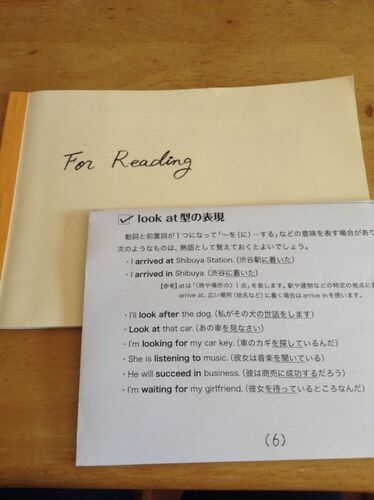 For Reading
look at 型の表現
動詞と前置詞が1つになって「〜を(に)…する」などの意味を表す場合があり
次のようなものは、熟語として覚えておくとよいでしょう。
・I arrived at Shibuya Station. (渋谷駅に着いた)
・I arrived in Shibuya. (渋谷に着いた)
【参考】atは「(時や場所の)1点」を表します。駅や建物などの特定の地点に
arrive at、広い場所(地名など)に着く場合は arrive in を使います。
・I'll look after the dog. (私がその犬の世話をします)
・Look at that car. (あの車を見なさい)
・I'm looking for my car key. (車のカギを探しているんだ)
・She is listening to music. (彼女は音楽を聞いている)
・He will succeed in business. (彼は商売に成功するだろう)
・I'm waiting for my girlfriend. (彼女を待っているところなんだ)
(6)